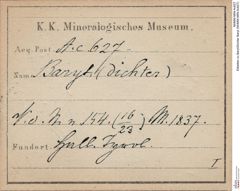 K. K. Mineralogisches Museum.
Acq. Post A. c. 627.
Nam Baryt (dichter)
V. d. N. n 154. (16/23) M. 1837.
Fundort: Hall. Tyrol.
I